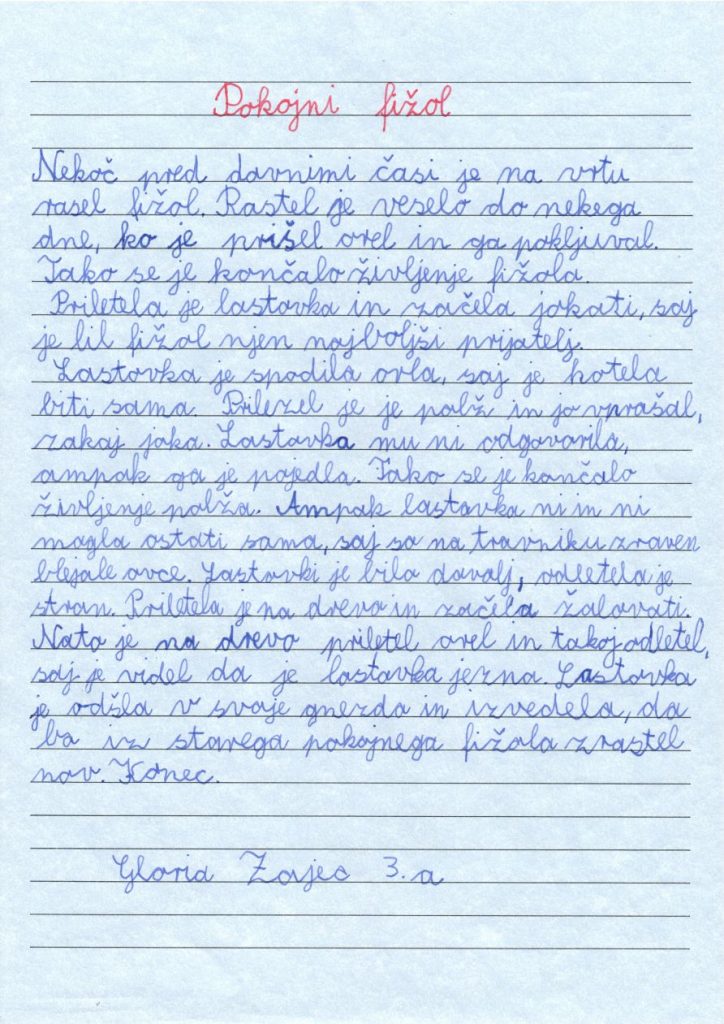 Pokojni fižol
Nekoč pred davnimi časi je na vrtu
rasel fižol. Rastel je veselo do nekega
dne, ko je prišel orel in ga pokljuval.
Tako se je končalo življenje fižola.
Priletela je lastovka in začela jokati, saj
je bil fižol njen najboljši prijatelj.
Lastovka je spodila orla, saj je hotela
biti sama. Prilezel je je polž in jo vprašal,
zakaj joka. Lastovka mu ni odgovorila,
ampak ga je pojedla. Tako se je končalo
življenje polža. Ampak lastovka ni in ni
mogla ostati sama, saj so na travniku zraven
blejale ovce. Lastovki je bilo dovolj, odletela je
stran. Priletela je na drevo in začela žalovati.
Nato je na drevo priletel orel in takoj odletel,
saj je videl da je lastovka jezna. Lastovka
je odšla v svoje gnezdo in izvedela, da
bo iz starega pokojnega fižola zrastel
nov. Konec.
Gloria Zajec 3. a